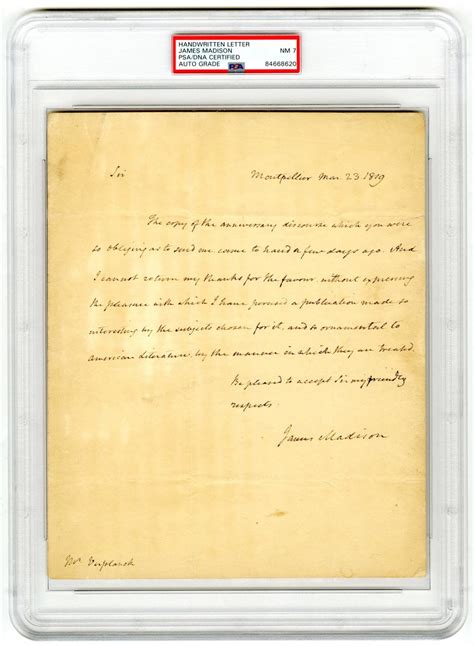 HANDWRITTEN LETTER
JAMES MADISON NM 7
PSA/DNA CERTIFIED
AUTO GRADE PSA 84668620
Sir
Montpellier Mar. 23. 1819
The copy of the anniversary discourse which you were
so obliging as to send me came to hand a few days ago. And
I cannot return my thanks for the favour without expressing
the pleasure with which I have perused a publication made so
interesting by the subjects chosen for it, and so ornamental to
american Literature by the manner in which they are treated.
Be pleased to accept Sir my friendly
respects
James Madison
Mr Verplanck